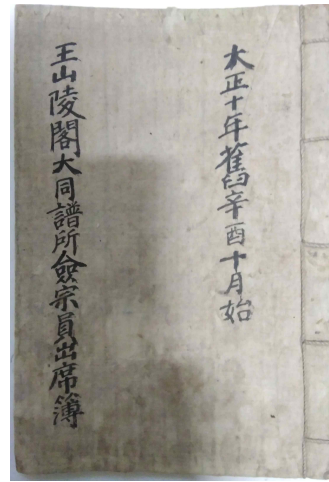 大正十年舊辛酉十月始
王山陵閣大同譜所僉宗員出席簿